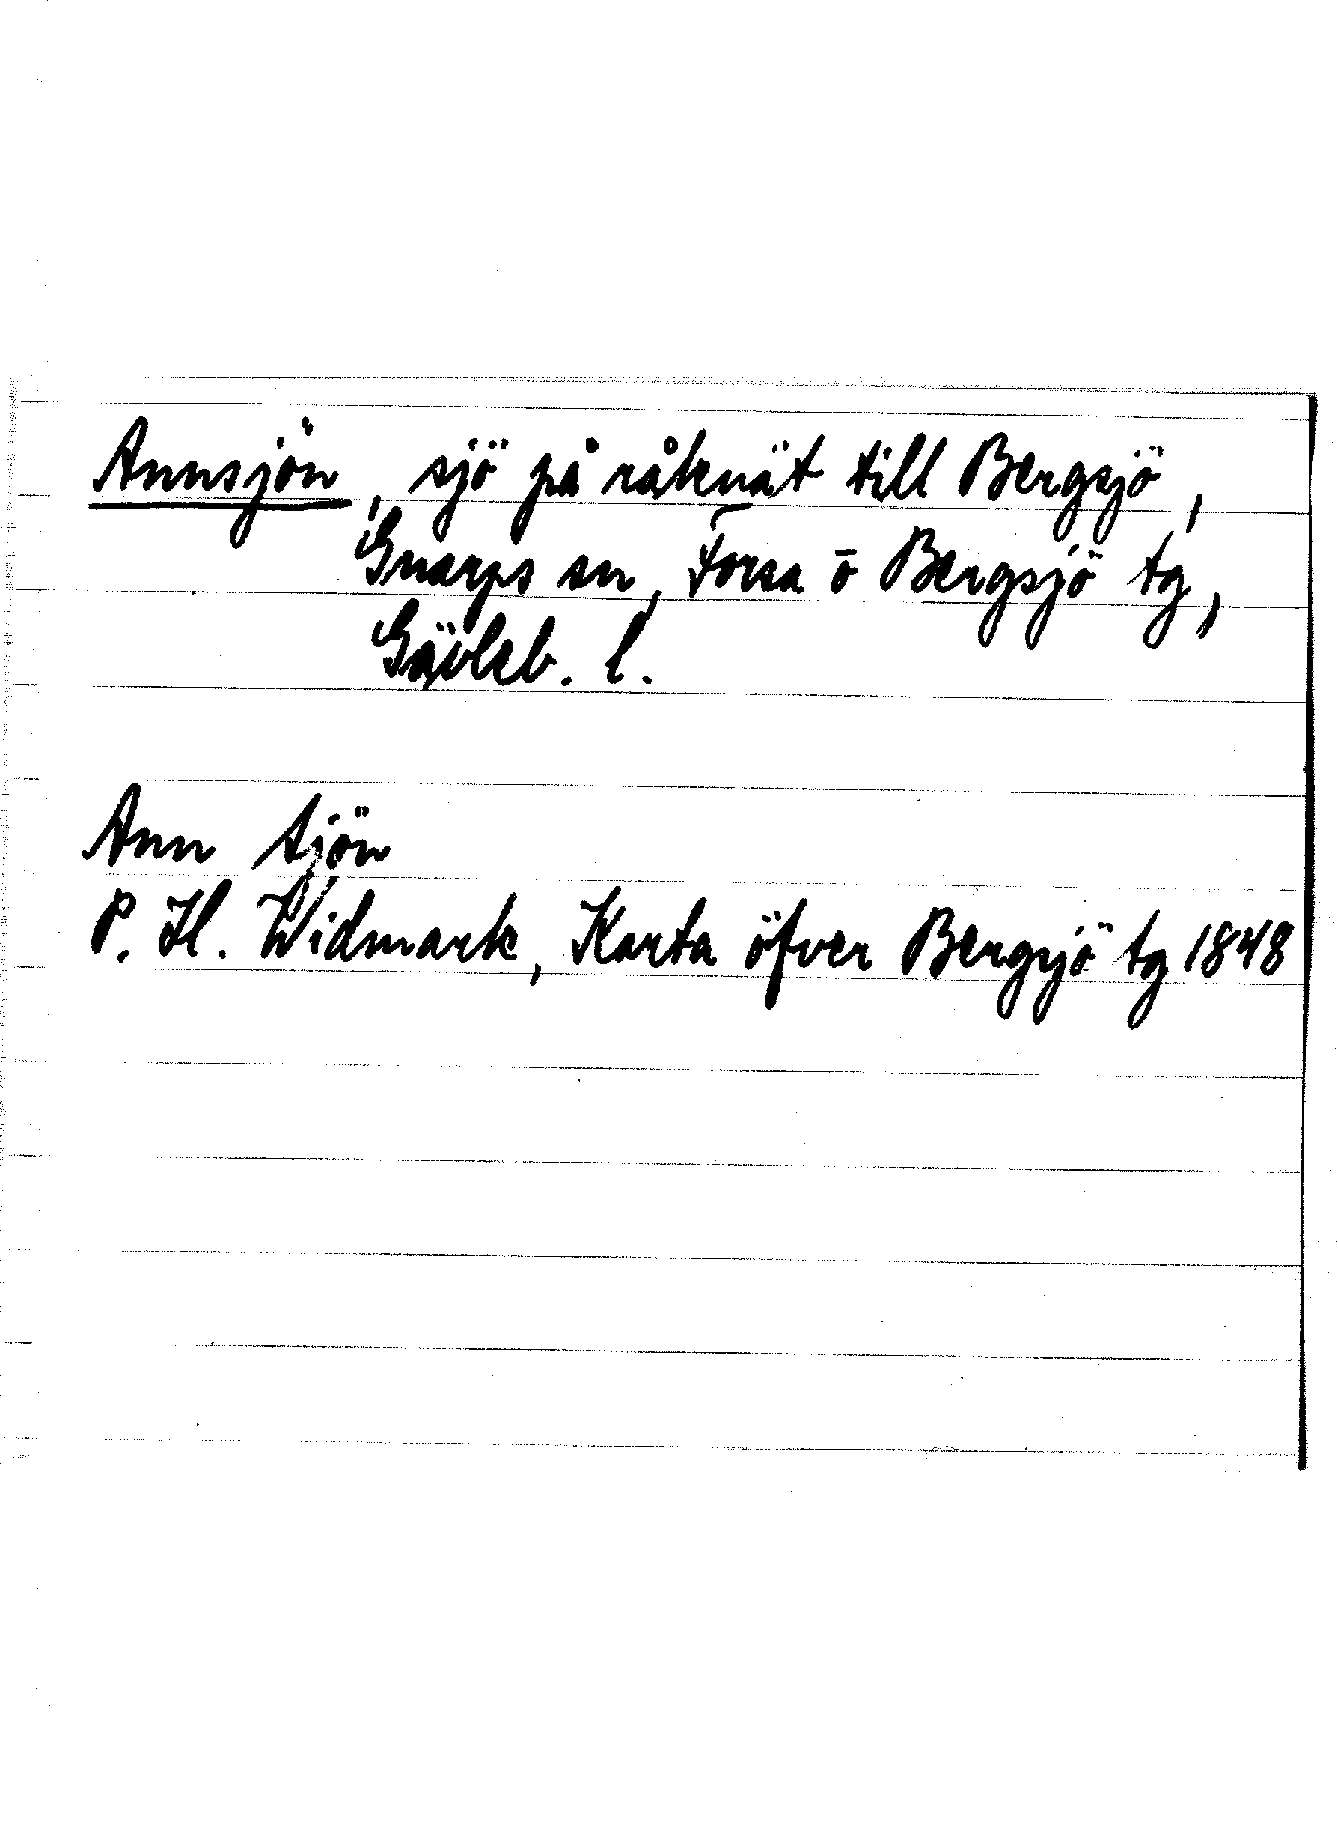 Annsjön, sjö på råknät till Bergsjö,
Gnarps sn, Forsa ō Bergsjö tg,
Gävleb. l.
Ann sjön
P. H. Widmark, Karta öfver Bergsjö tg 1848